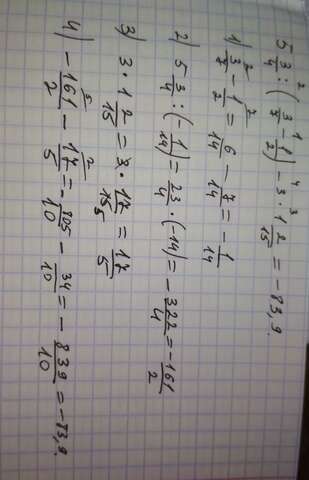 5 3/4 : (3/7 - 1/2) - 3 · 1 2/15 = -83,9.
1) 3/7 - 1/2 = 6/14 - 7/14 = - 1/14
2) 5 3/4 : (- 1/14) = 23/4 · (-14) = - 322/4 = - 161/2
3) 3 · 1 2/15 = 3 · 17/15 = 17/5
4) - 161/2 - 17/5 = - 805/10 - 34/10 = - 839/10 = -83,9.